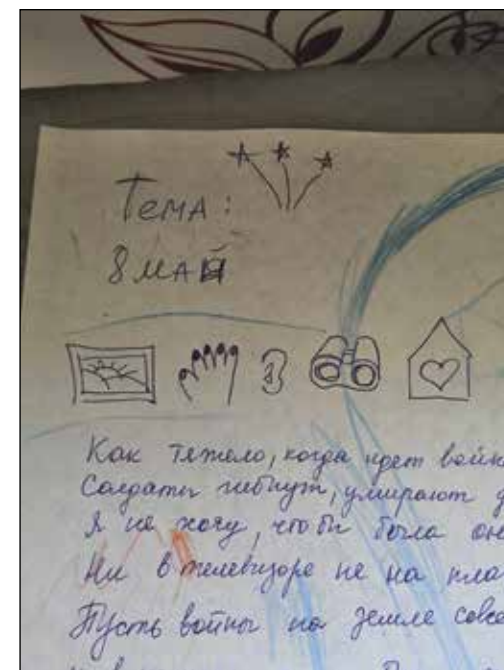 Тема:
8 мая
Как тяжело, когда идет войн
Солдаты гибнут, умирают д
Я не хочу, чтобы была он
Ни в телевизоре не на пла
Пусть войны на земле совсе